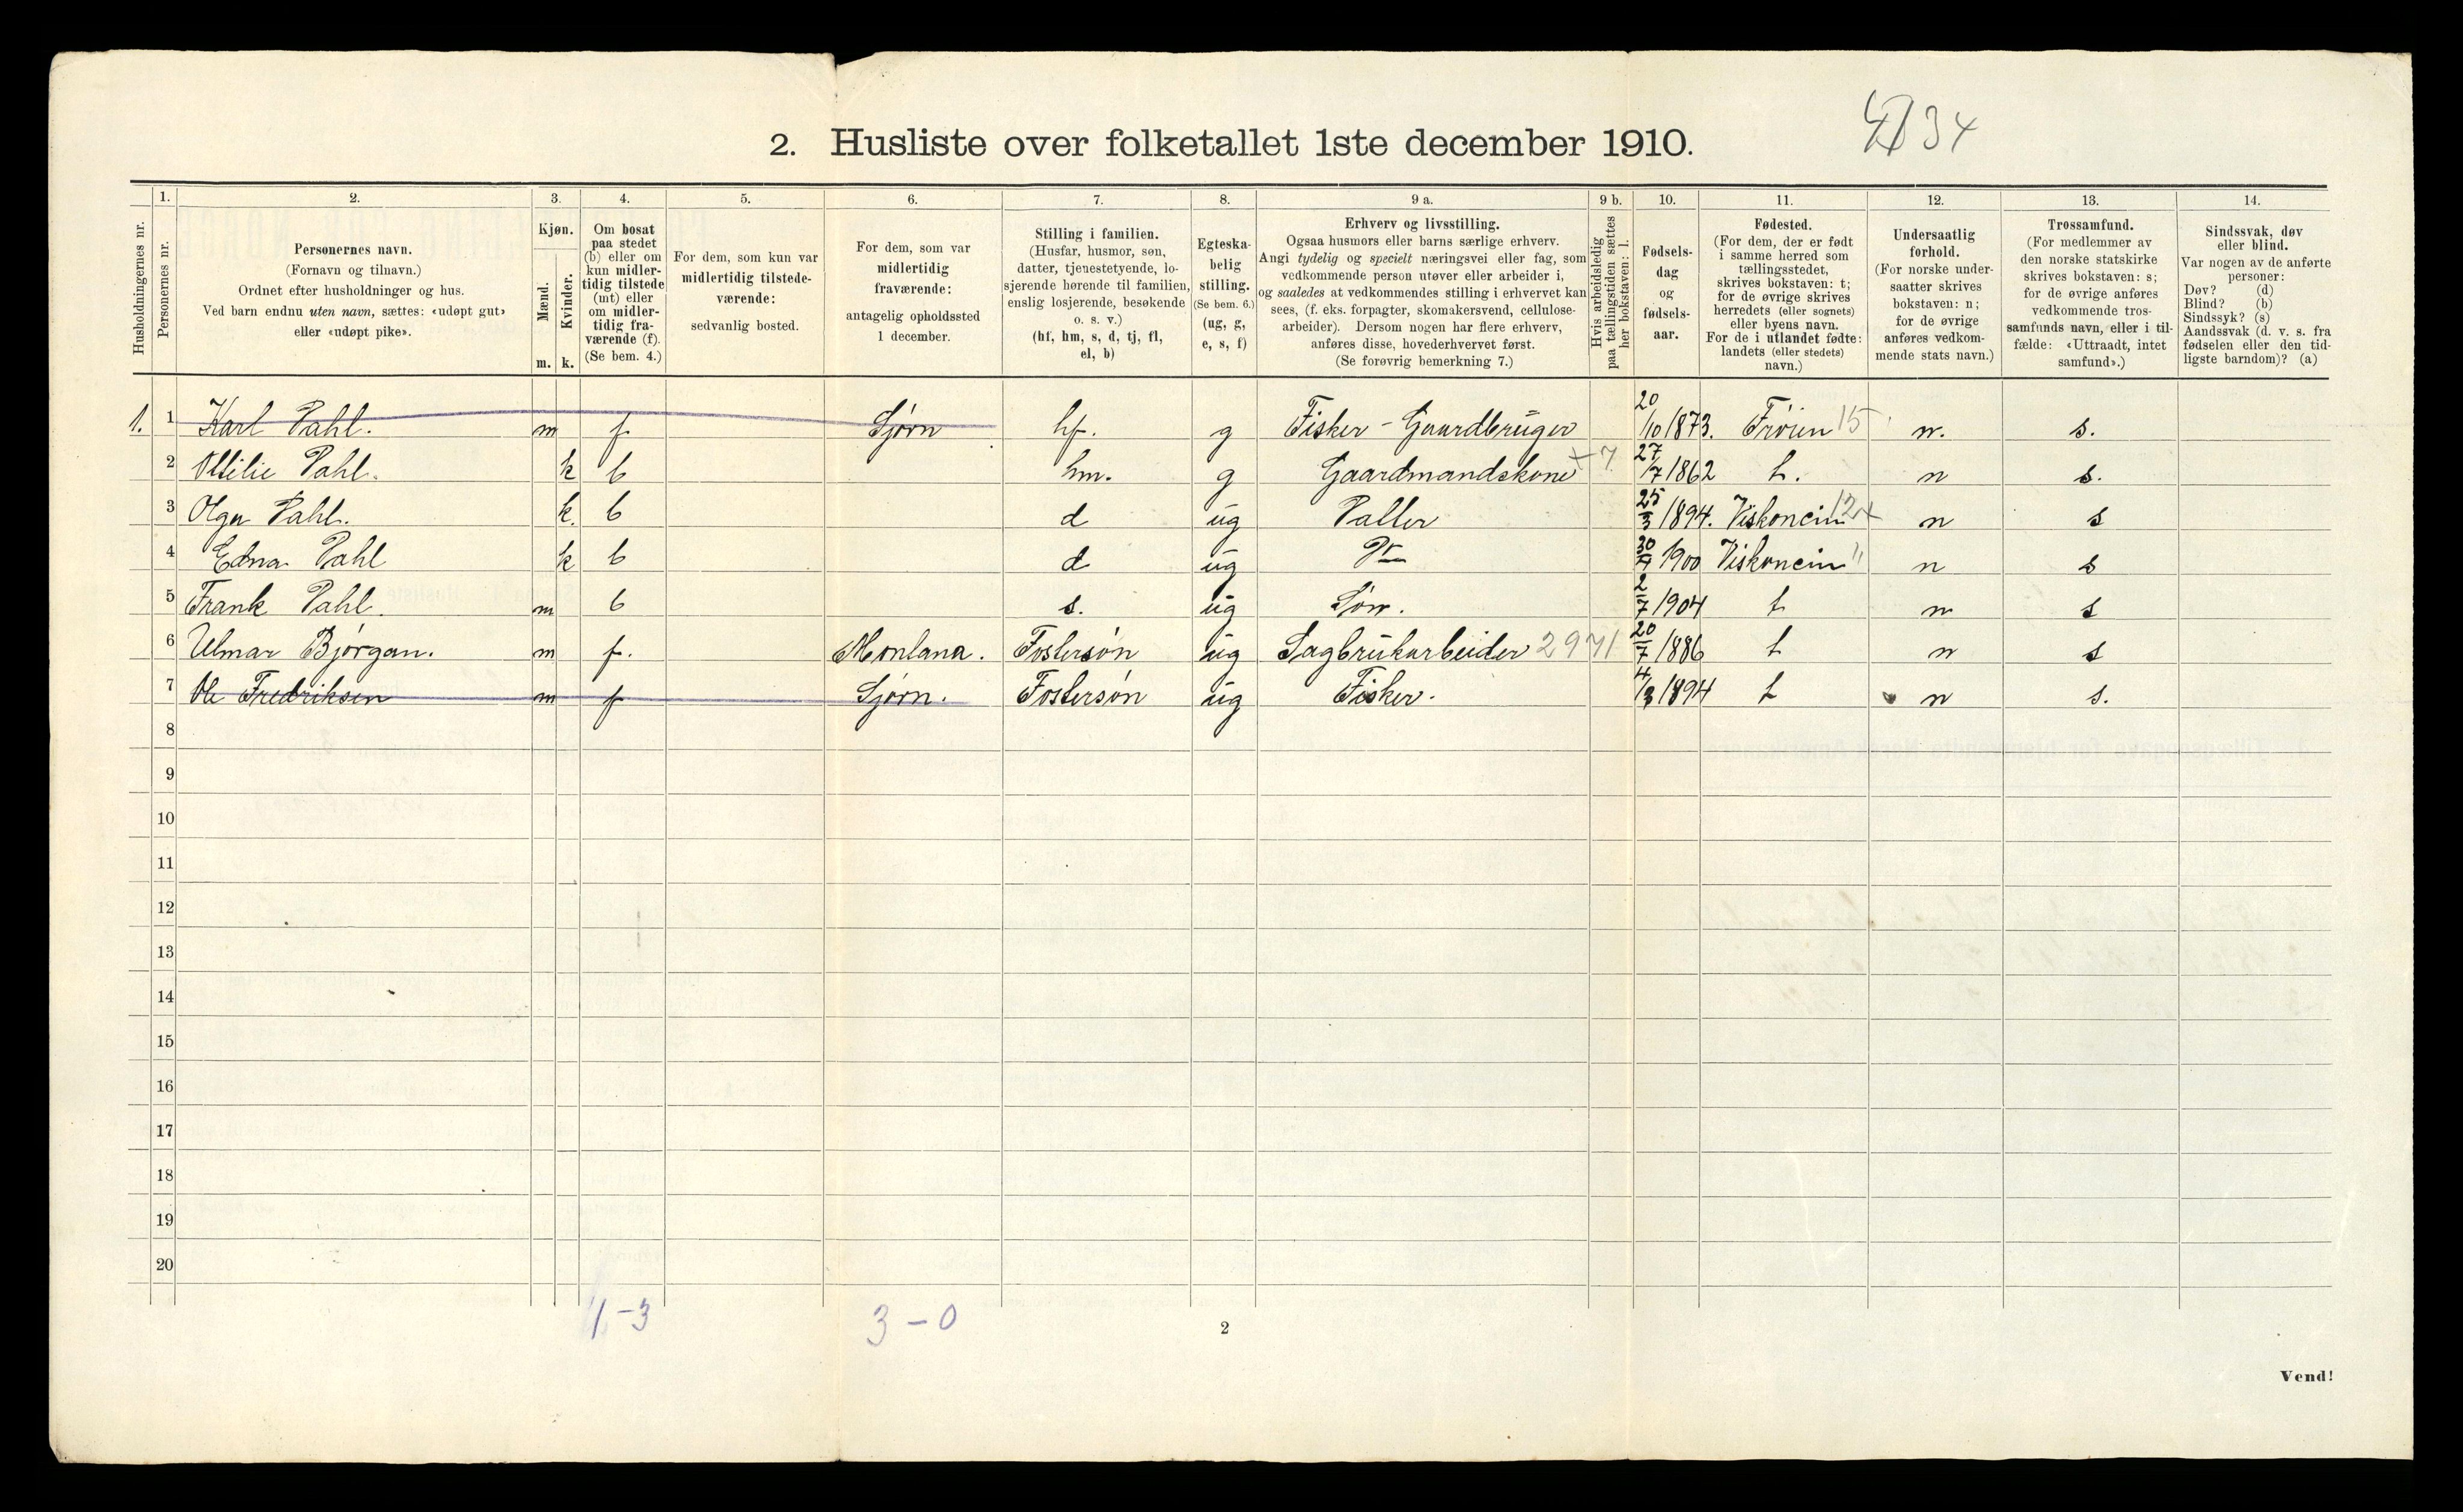 2. Husliste over folketallet 1ste december 1910.
34
Husholdningernes nr.
1.
Personernes nr.
2.
Personernes navn.
(Fornavn og tilnavn.)
Ordnet efter husholdninger og hus.
Ved barn endnu uten navn, sættes: «udøpt gut»
eller «udøpt pike».
3.
Kjøn.
Mænd.
Kvinder.
m. k.
4.
Om bosat
paa stedet
(b) eller om
kun midler-
tidig tilstede
(mt) eller
om midler-
tidig fra-
værende (f).
(Se bem. 4.)
5.
For dem, som kun var
midlertidig tilstede-
værende:
sedvanlig bosted.
6.
For dem, som var
midlertidig
fraværende:
antagelig opholdssted
1 december.
7.
Stilling i familien.
(Husfar, husmor, søn,
datter, tjenestetyende, lo-
sjerende hørende til familien,
enslig losjerende, besøkende
o. s. v.)
(hf, hm, s, d, tj, fl,
el, b)
8.
Egteska-
belig
stilling.
(Se bem. 6.)
(ug, g,
e, s, f)
9 a.
Erhverv og livsstilling.
Ogsaa husmors eller barns særlige erhverv.
Angi tydelig og specielt næringsvei eller fag, som
vedkommende person utøver eller arbeider i,
og saaledes at vedkommendes stilling i erhvervet kan
sees, (f. eks. forpagter, skomakersvend, cellulose-
arbeider). Dersom nogen har flere erhverv,
anføres disse, hovederhvervet først.
(Se forøvrig bemerkning 7.)
9 b.
Hvis arbeidsledig
paa tællingstiden sættes
her bokstaven: l.
10.
Fødsels-
dag
og
fødsels-
aar.
11.
Fødested.
(For dem, der er født
i samme herred som
tællingsstedet,
skrives bokstaven: t;
for de øvrige skrives
herredets (eller sognets)
eller byens navn.
For de i utlandet fødte:
landets (eller stedets)
navn.)
12.
Undersaatlig
forhold.
(For norske under-
saatter skrives
bokstaven: n;
for de øvrige
anføres vedkom-
mende stats navn.)
13.
Trossamfund.
(For medlemmer av
den norske statskirke
skrives bokstaven: s;
for de øvrige anføres
vedkommende tros-
samfunds navn, eller i til-
fælde: «Uttraadt, intet
samfund».)
14.
Sindssvak, døv
eller blind.
Var nogen av de anførte
personer:
Døv? (d)
Blind? (b)
Sindssyk? (s)
Aandssvak (d. v. s. fra
fødselen eller den tid-
ligste barndom)? (a)
1. 1 Karl Pahl. m f Sjørn hf. g Fisker - Gaardbrüger 20/10 1873. Frøien 15 n. s.
2 Otilie Pahl. k b hm. g Gaardmandskone 7 27/7 1862 t. n s.
3 Olga Pahl. k. b d üg 25/3 1894. Viskoncin n s
4 Edna Pahl k b d üg 1900 Viskoncin " n s
5 Frank Pahl. m b s. üg Søn. 2/7 1904 t n s
6 Ulmar Bjørgan. m f. Montana. Fostersøn üg Sagbrükarbeider 2971 20/7 1886 t n s
7 Ole Fredriksen m f Sjørn. Fostersøn üg Fisker. 4/3 1894 t n s.
8
9
10
11
12
13
14
15
16
17
18
19
20
1-3 3-0
2
Vend!